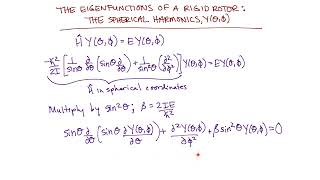 THE EIGENFUNCTIONS OF A RIGID ROTOR:
THE SPHERICAL HARMONICS, Y(θ,φ)
Ĥ Y(θ,φ) = EY(θ,φ)
-ħ²/2I [1/sinθ ∂/∂θ (sinθ ∂/∂θ) + 1/sin²θ ∂²/∂φ²] Y(θ,φ) = EY(θ,φ)
Ĥ in spherical coordinates
Multiply by sin²θ; β = 2IE/ħ²
sinθ ∂/∂θ (sinθ ∂Y(θ,φ)/∂θ) + ∂²Y(θ,φ)/∂φ² + β sin²θ Y(θ,φ) = 0